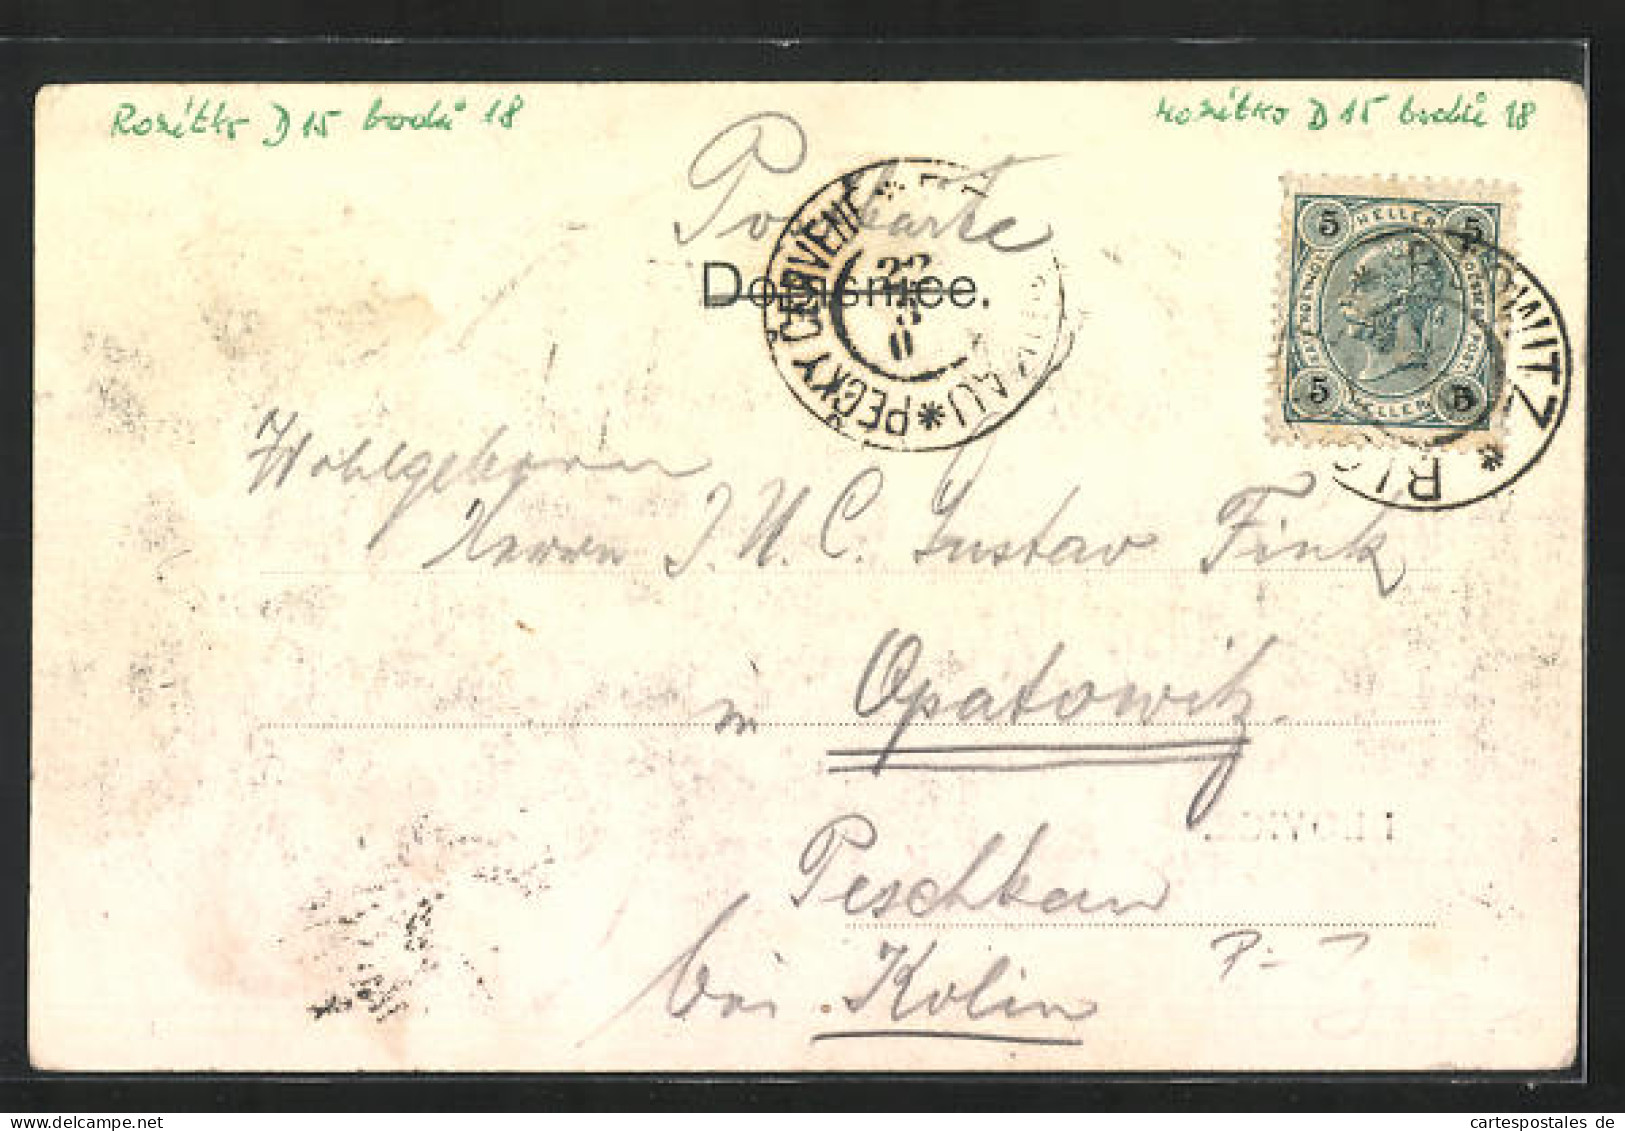 Rozítko D 15 bodů 18
rozítko D 15 bodů 18
Postkarte
Dopisnice.
PEČKY ČERVENÉ
22
5
0
5 HELLER 5
5 HELLER 5
Wohlgeborn
Herrn J. U. C. Gustav Fink
in Opatowitz
Peschkau
bei Kolin
cartespostales de